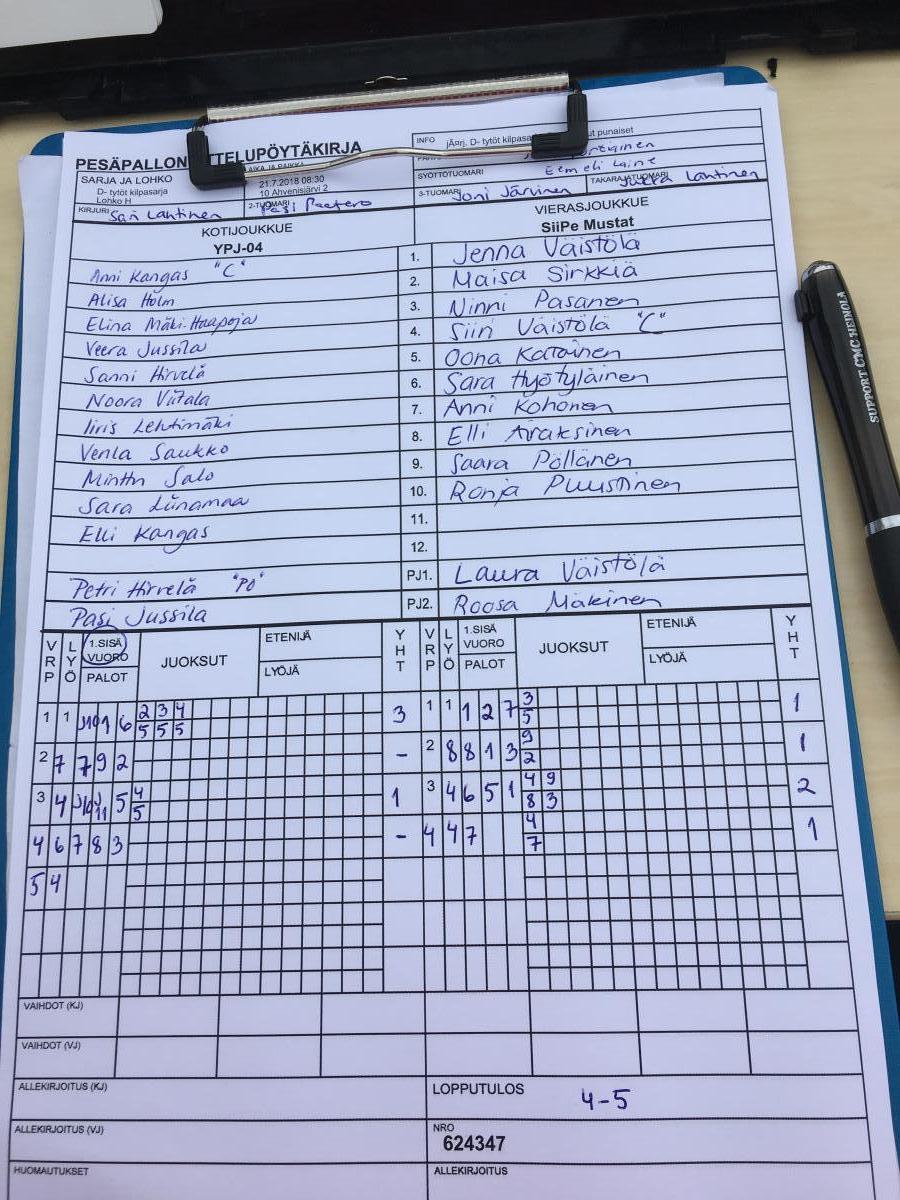 PESÄPALLON OTTELUPÖYTÄKIRJA
INFO jÃ¤rj. D- tytöt kilpasa ut punaiset
SARJA JA LOHKO
D- tytöt kilpasarja
Lohko H
AIKA JA PAIKKA
21.7.2018 08:30
10 Ahvenisjärvi 2
SYÖTTÖTUOMARI Eemeli Laine
KIRJURI Sari Lahtinen
2-TUOMARI Pasi Paatero
3-TUOMARI Joni Järvinen
TAKARAJATUOMARI Jukka Lahtinen
KOTIJOUKKUE
YPJ-04
VIERASJOUKKUE
SiiPe Mustat
Anni Kangas "C" 1. Jenna Väistölä
Alisa Holm 2. Maisa Sirkkiä
Elina Mäki-Haapoja 3. Ninni Pasanen
Veera Jussila 4. Siiri Väistölä "C"
Sanni Hirvelä 5. Oona Katainen
Noora Viitala 6. Sara Hyötyläinen
Iiris Lehtimäki 7. Anni Kohonen
Venla Saukko 8. Elli Araksinen
Minttu Salo 9. Saara Pöllänen
Sara Liinamaa 10. Ronja Puustinen
Elli Kangas 11.
12.
Petri Hirvelä "PO" PJ1. Laura Väistölä
Pasi Jussila PJ2. Roosa Mäkinen
VRP LYÖ 1.SISÄ VUORO PALOT JUOKSUT ETENIJÄ LYÖJÄ YHT VRP LYÖ 1.SISÄ VUORO PALOT JUOKSUT ETENIJÄ LYÖJÄ YHT
1 1 10 1 6 2 3 4 3 1 1 1 2 7 3 1
5 5 5 5
2 7 7 9 2 - 2 8 8 1 3 9 1
2
3 4 11 5 4 1 3 4 6 5 1 4 9 2
5 8 3
4 6 7 8 3 - 4 4 7 4 1
7
5 4
VAIHDOT (KJ)
VAIHDOT (VJ)
ALLEKIRJOITUS (KJ)
LOPPUTULOS 4-5
ALLEKIRJOITUS (VJ)
NRO
624347
HUOMAUTUKSET
ALLEKIRJOITUS
SUPPORT CMC HEINOLA